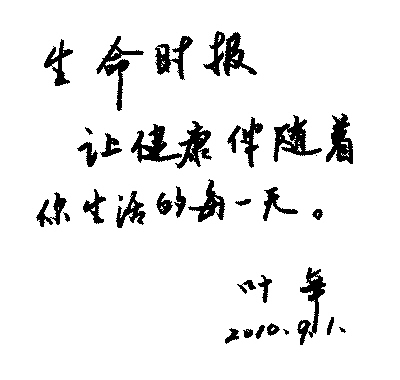 生命时报
让健康伴随着
你生活的每一天。
叶华
2010.9.1.